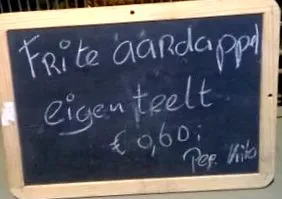 FRite aardappel
eigen teelt
€ 0,60;
Per kilo